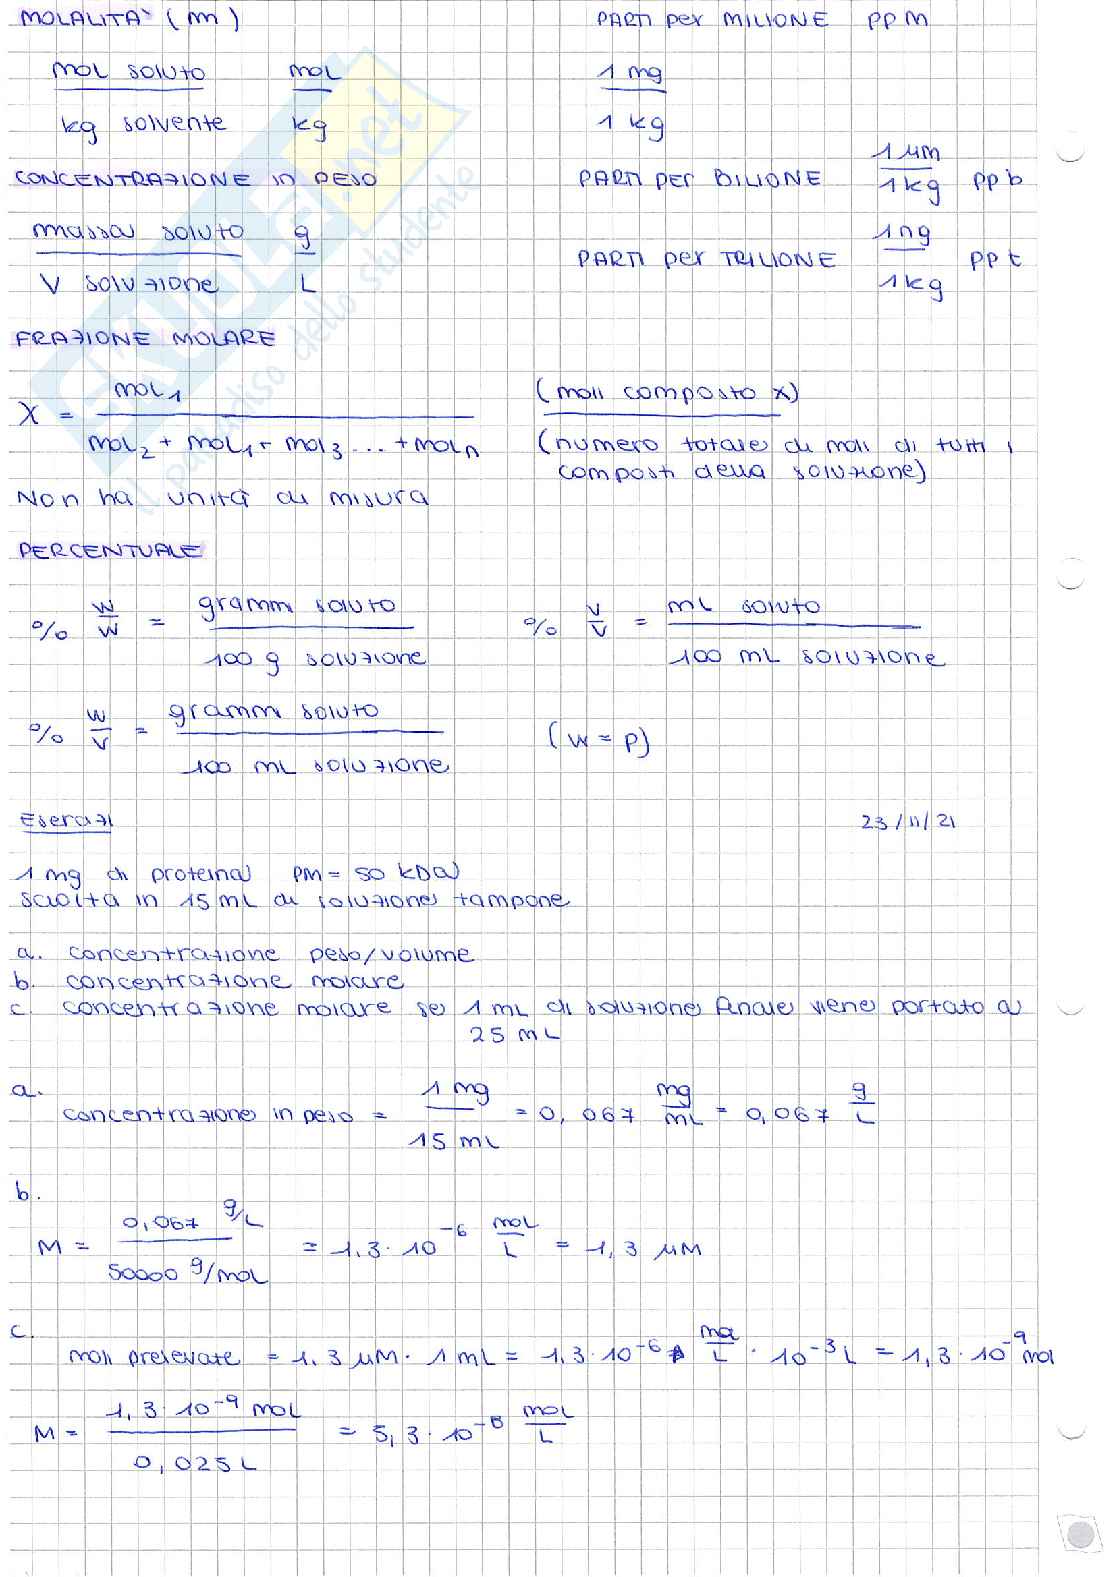 MOLALITA' (m)
mol soluto mol
kg solvente kg
CONCENTRAZIONE in PESO
massa soluto g
V soluzione L
PARTI per MILIONE ppM
1 mg
1 kg
PARTI per BILIONE 1 µm ppb
1 kg
PARTI per TRILIONE 1 ng ppt
1 kg
FRAZIONE MOLARE
X = mol1 (moli composto x)
mol2 + mol1 + mol3 ... + moln (numero totale di moli di tutti i
composti della soluzione)
Non ha unità di misura
PERCENTUALE
% W/W = grammi soluto % V/V = mL soluto
100 g soluzione 100 mL soluzione
% W/V = grammi soluto (W = P)
100 mL soluzione
Esercizi 23/11/21
1 mg di proteina PM = 50 kDa
sciolta in 15 mL di soluzione tampone
a. concentrazione peso/volume
b. concentrazione molare
c. concentrazione molare se 1 mL di soluzione finale viene portato a
25 mL
a.
concentrazione in peso = 1 mg = 0,067 mg/mL = 0,067 g/L
15 mL
b.
M = 0,067 g/L = 1,3 · 10⁻⁶ mol/L = 1,3 µM
50000 g/mol
c.
moli prelevate = 1,3 µM · 1 mL = 1,3 · 10⁻⁶ mol/L · 10⁻³ L = 1,3 · 10⁻⁹ mol
M = 1,3 · 10⁻⁹ mol = 5,3 · 10⁻⁸ mol/L
0,025 L
SKUOLA.net
il paradiso dello studente